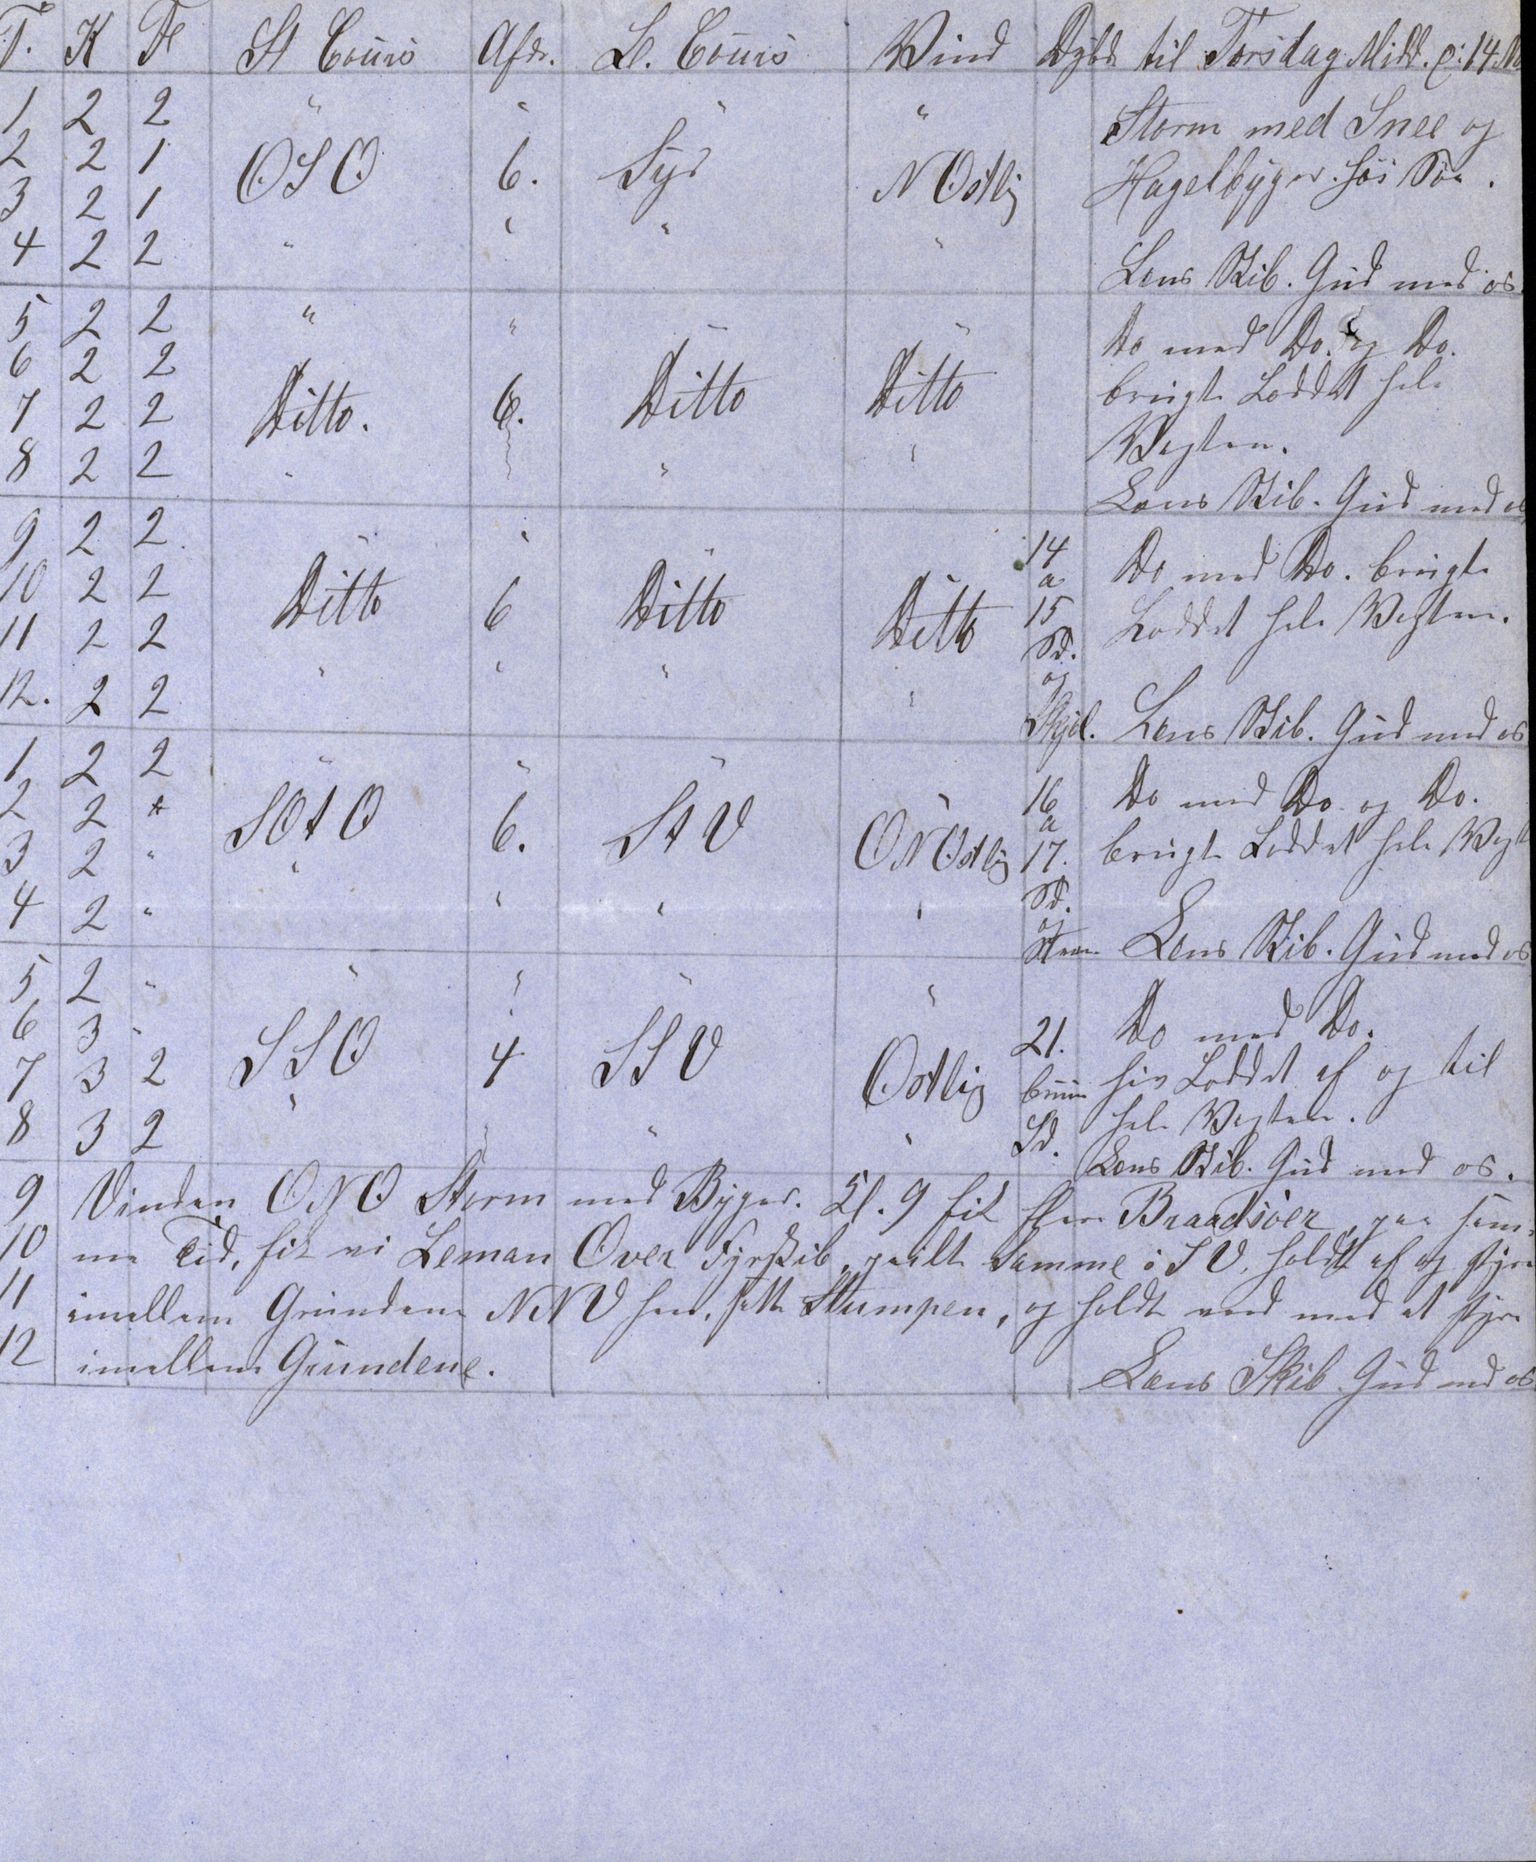 T. K F St Cours Afdr. Bh. Cours Vind Dybde til Torsdag Midd. d: 14. M
1 2 2 " " " " Storm med Snee og
2 2 1 OSO 6. Syd NOstlig Hagelbyger. høi Søe.
3 2 1
4 2 2 " " " " Lens Skib. Gud med os.
5 2 2 " " " " Do med Do. og Do.
6 2 2 Ditto. 6. Ditto Ditto brugte Loddet hele
7 2 2 Vagten.
8 2 2 " " " " Lens Skib. Gud med os
9 2 2 " " " 14 Do med Do. brugte
10 2 2 Ditto 6 Ditto Ditto a 15 Loddet hele Vagten.
11 2 2 Sd. og
12. 2 2 " " " " Skjel. Lens Skib. Gud med os
1 2 2 " " " " 16 Do med Do og Do.
2 2 " SOtO 6. StV ONOstlig a 17. brugte Loddet hele Vagt
3 2 " Sd. og
4 2 " " " " " Steen Lens Skib. Gud med os
5 2 " " " " "
6 3 " SSO 4 SSV Ostlig 21. Do med Do.
7 3 2 bruun hiv Loddet af og til
8 3 2 " " " " Sd. hele Vagten.
Lens Skib. Gud med os.
9 Vinden ONO Storm med Byger. Kl. 9 fik flere Braadsøer, paa sam,
10 me Tid, fik vi Leman Over Fyrskib, peilt Samme i SV, holdt af og styre
11 imellem Grundene NNV hen, sette Stumpen, og holdt ved med at styre
12 imellem Grundene. Lens Skib Gud med os